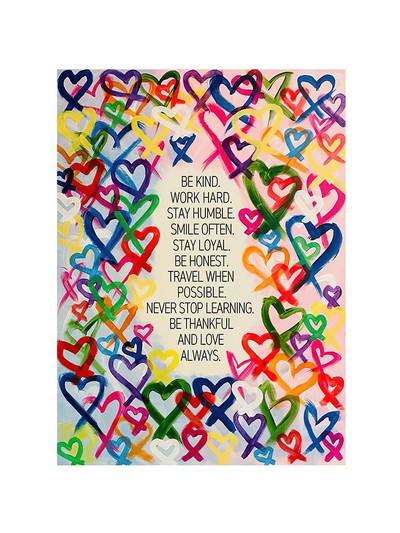 BE KIND.
WORK HARD.
STAY HUMBLE.
SMILE OFTEN.
STAY LOYAL.
BE HONEST.
TRAVEL WHEN
POSSIBLE.
NEVER STOP LEARNING.
BE THANKFUL
AND LOVE
ALWAYS.